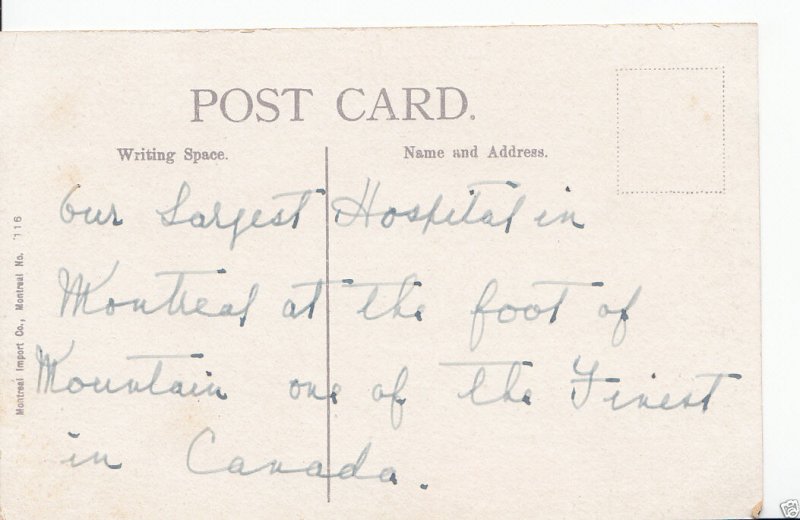 POST CARD.
Writing Space.
Name and Address.
Our Largest Hospital in
Montreal at the foot of
Mountain one of the Finest
in Canada.
Montreal Import Co., Montreal No. 116